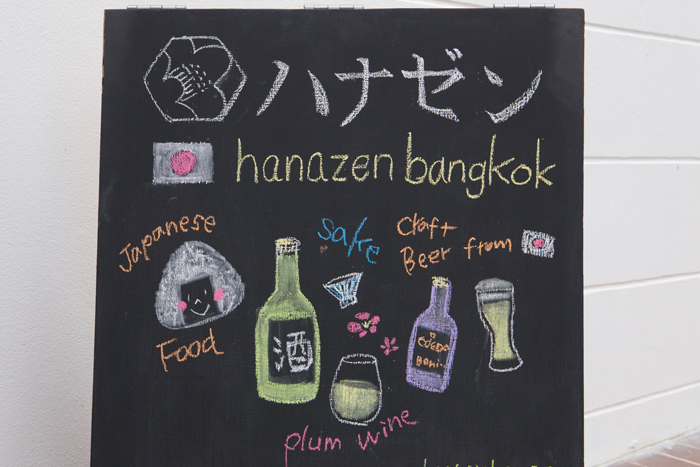 ハナゼン
hanazen bangkok
Japanese
Food
sake
Craft
Beer from
酒
COEDO
plum wine